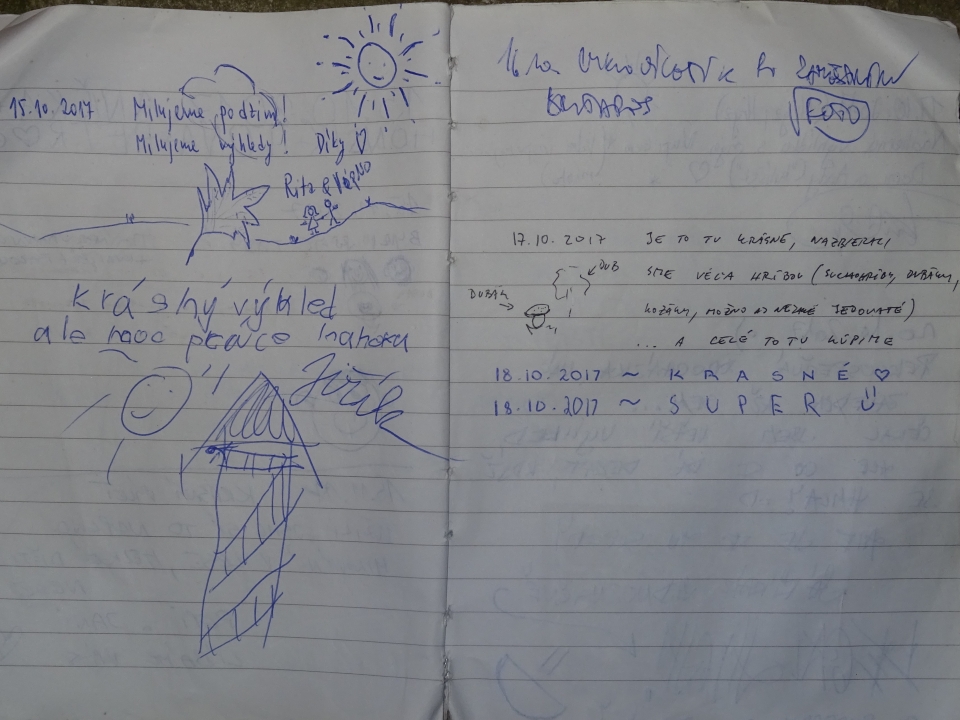 15.10.2017 Milujeme podzim!
Milujeme výhledy! Díky
Rita &
Krásný výhled
ale moc práce nahoru
Jiřík
FOTO
17.10.2017 JE TO TU KRÁSNÉ, NAZBIERALI
SME VEĽA HRÍBOV (SUCHOHRÍBY, DUBÁKY,
DUB
DUBÁK
KOZÁKY, MOŽNO AJ NEJAKÉ JEDOVATÉ)
... A CELÉ TO TU KÚPIME
18.10.2017 ~ KRASNÉ ♡
18.10.2017 ~ SUPER